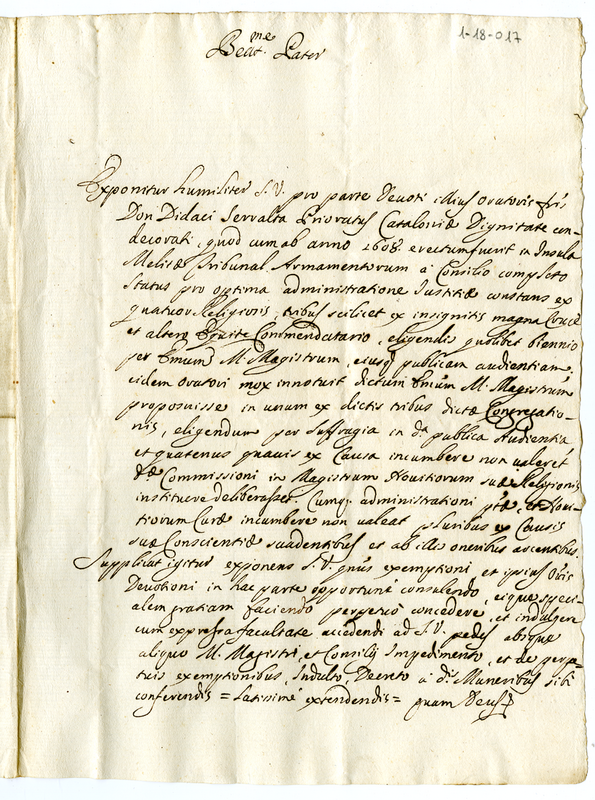 1-18-017
Beat.me Pater
Exponitur humiliter S.V. pro parte Devoti illius Oratoris fris
Don Didaci Serralta Prioratus Cataloniæ Dignitate con-
decorati, quod cum ab anno 1608. erectum fuerit in Insula
Melitæ Tribunal Armamentorum a Consilio completo
Status pro optima administratione Iustitiæ constans ex
quatuor Religiosis, tribus scilicet ex insignitis magna Cruce
et altero Equite Commendatario, eligendis quolibet biennio
per Emum M. Magistrum, eiusq publicam audientiam,
eidem Oratori mox innotuit dictum Emum M. Magistrum
proposuisse in unum ex dictis tribus dictæ Congregatio-
nis, eligendum per suffragia in da publica Audientia
et quatenus quavis ex Causa incumbere non valeret
dæ Commissioni in Magistrum Novitiorum suæ Religionis
instituere deliberasse. Cumq. administrationi ptæ, et Novi-
tiorum Curæ incumbere non valeat pluribus ex Causis
suæ Conscientiæ suadentibus et ab illis oneribus arcentibus.
Supplicat igitur exponens S.V. qnus exemptioni, et ipsius Oris
Devotioni in hac parte opportune consulendo, eique speci-
alem gratiam faciendo perpetuo concedere, et indulgere
cum expressa facultate accedendi ad S.V. pedes absque
aliquo M. Magistri, et Consilij Impedimento, et de perpe-
tuis exemptionibus, Indulto, Decreto a dis Muneribus sibi
conferendis = latissime extendendis = quam Deus